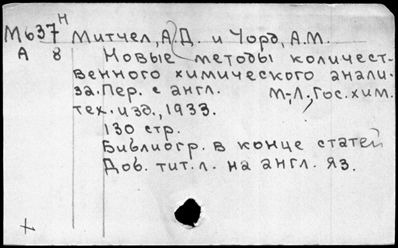 М637Н Митчел, А.Д. и Чорд, А.М.
А 8 Новые методы количест-
венного химического анали-
за. Пер. с англ. М.-Л, Гос. хим.
тех. изд., 1933.
130 стр.
Библиогр. в конце статей
Доб. тит. л. на англ. яз.